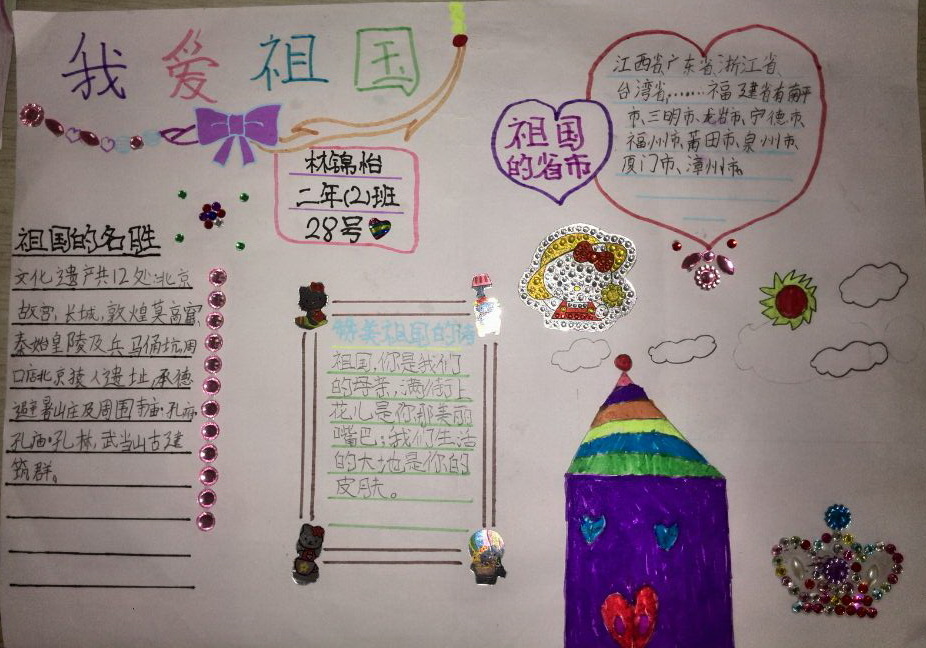 我爱祖国
林锦怡
二年(2)班
28号
祖国
的省市
江西省、广东省、浙江省、
台湾省,……福建省有南平
市、三明市、龙岩市、宁德市、
福州市、莆田市、泉州市、
厦门市、漳州市。
祖国的名胜
文化遗产共12处:北京
故宫、长城、敦煌莫高窟,
秦始皇陵及兵马俑坑,周
口店北京猿人遗址,承德
避暑山庄及周围寺庙,孔府
孔庙·孔林,武当山古建
筑群。
赞美祖国的诗
祖国,你是我们
的母亲,满街上
花儿是你那美丽
嘴巴;我们生活
的大地是你的
皮肤。